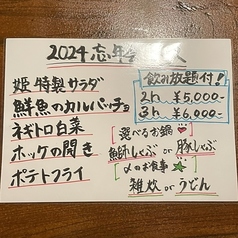 2024 忘年
飲み放題付!
姫 特製サラダ
鮮魚のカルパッチョ
ネギトロ白菜
ホッケの開き
ポテトフライ
2h ¥5,000-
3h ¥6,000-
選べるお鍋
鰤しゃぶ or 豚しゃぶ
〆のお食事
雑炊 or うどん